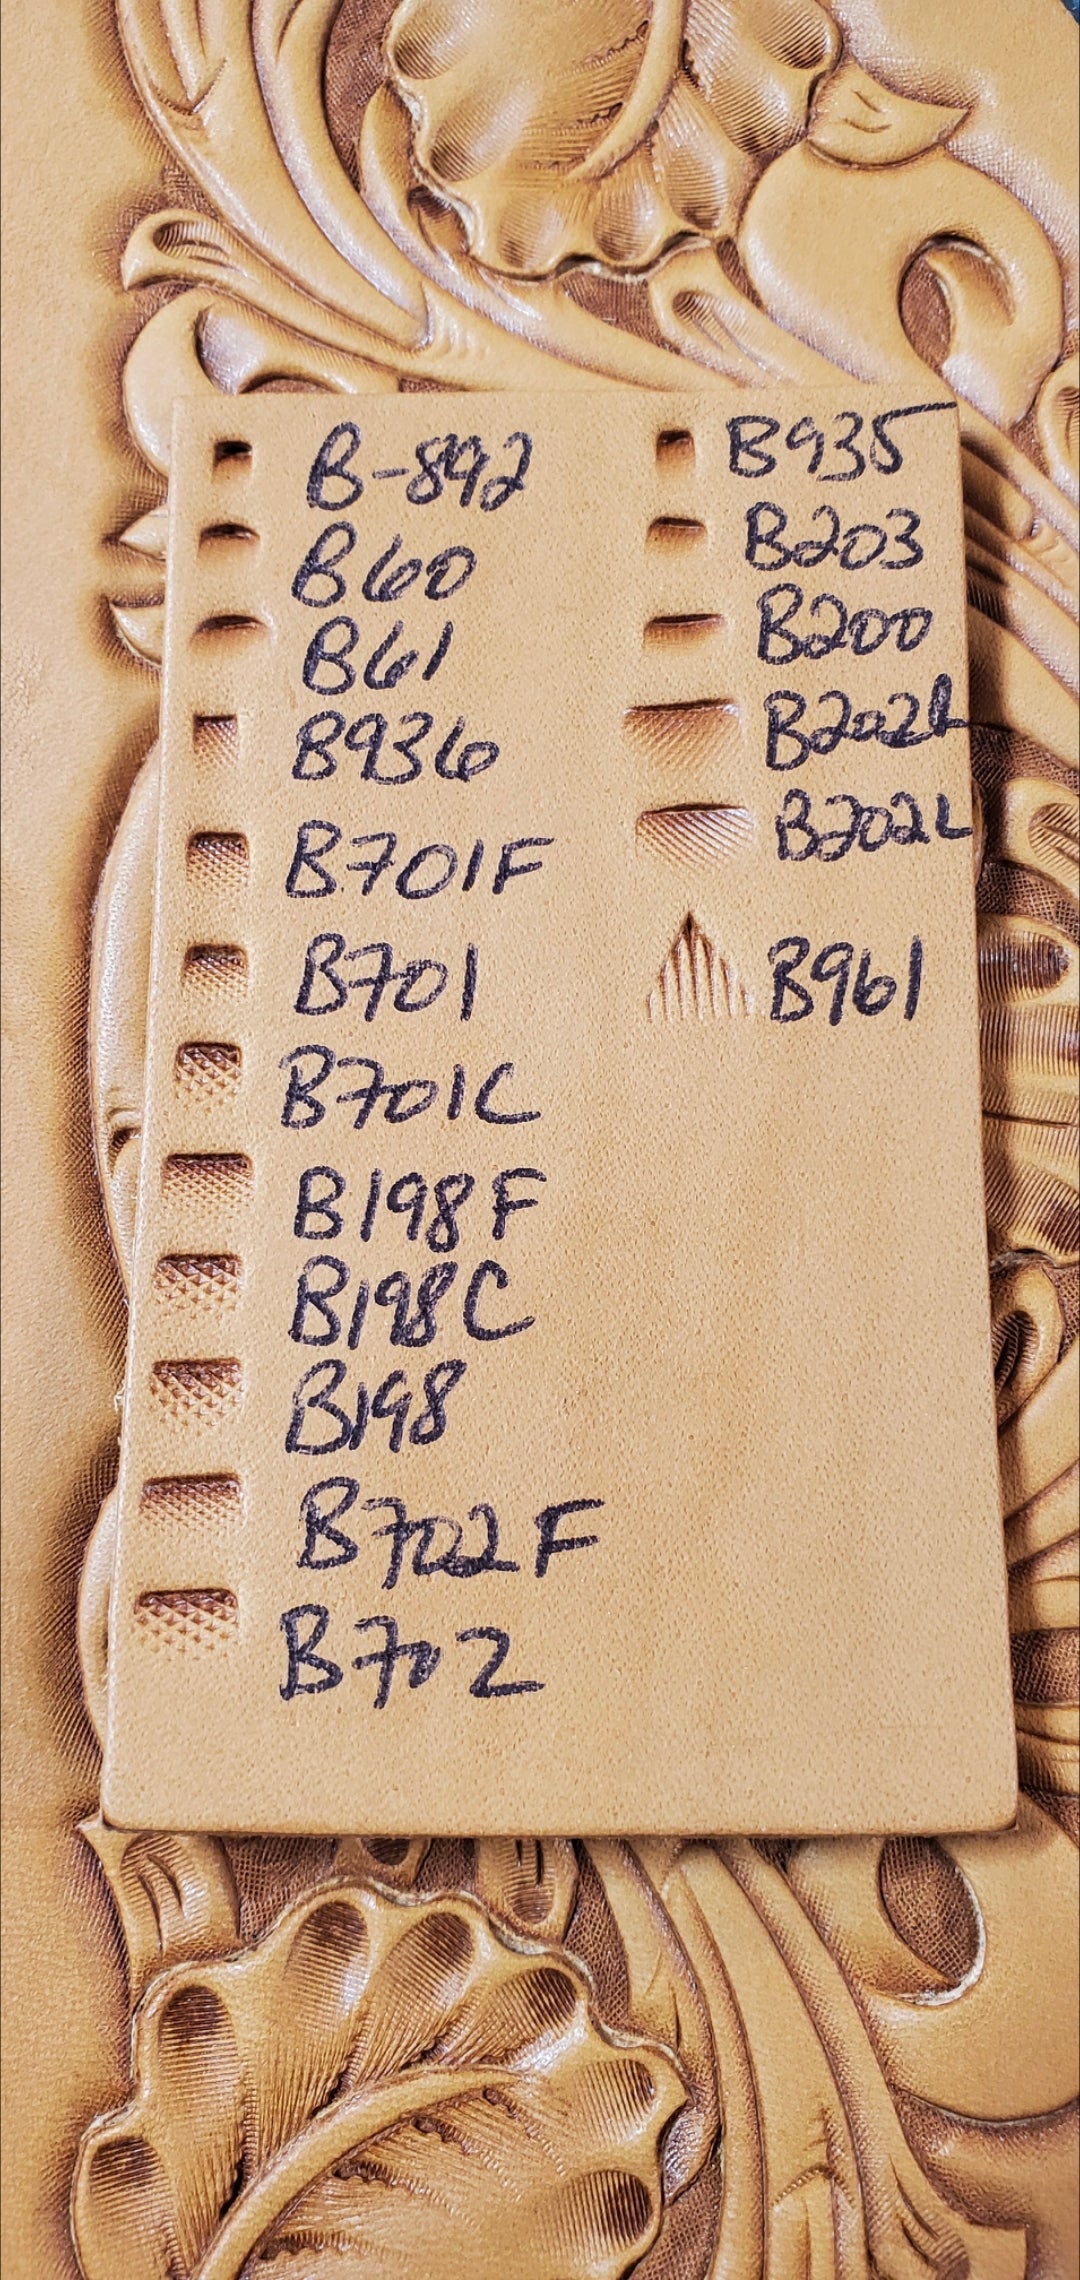 B-892
B60
B61
B936
B701F
B701
B701C
B198F
B198C
B198
B702F
B702
B935
B203
B200
B202R
B202L
B961